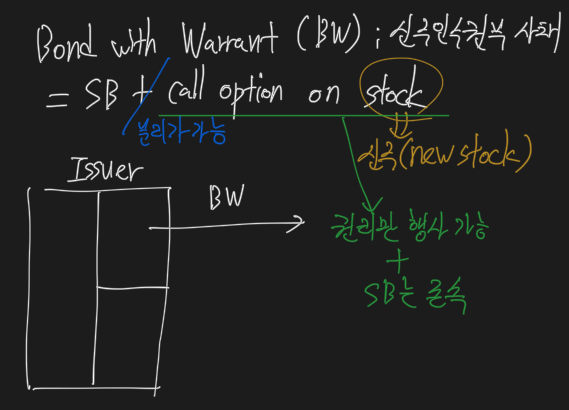 Bond with Warrant (BW) ; 신주인수권부 사채
= SB + call option on stock
분리가 가능
신주(new stock)
Issuer
BW
권리만 행사 가능
+
SB는 존속